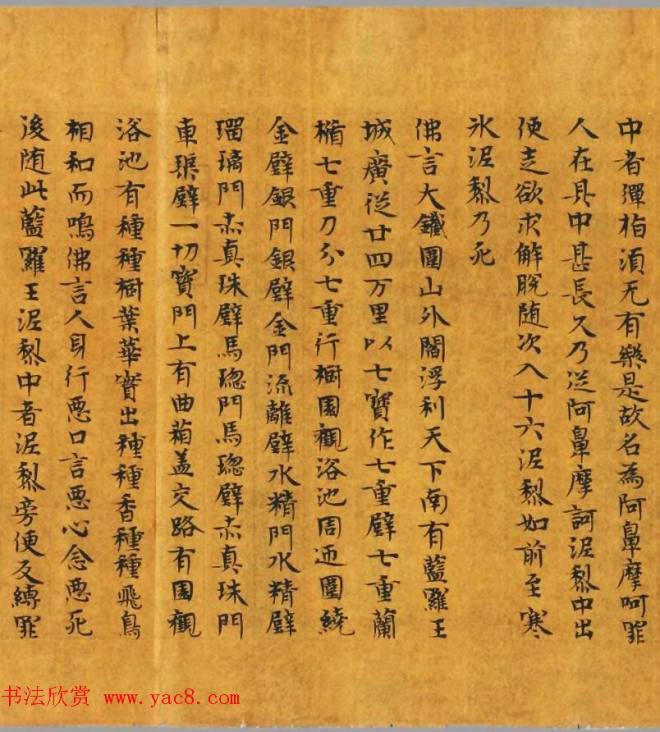 中者彈指湏无有樂是故名為阿鼻摩呵罪
人在其中甚長久乃從阿鼻摩訶泥犁中出
便走欲求解脫随次入十六泥犁如前至寒
氷泥犁乃死
佛言大鐵圍山外閻浮利天下南有藍羅王
城廣從廿四万里以七寶作七重壁七重蘭
楯七重刀分七重行樹園觀浴池周迊圍繞
金壁銀門銀壁金門流離壁水精門水精壁
瑠璃門赤真珠壁馬瑙門馬瑙壁赤真珠門
車璖壁一切寶門上有曲葙盖交路有園觀
浴池有種種樹葉華實出種種香種種飛鳥
相和而鳴佛言人身行惡口言惡心念惡死
後随此藍羅王泥犁中者泥犁旁便反縛罪
书法欣赏 www.yac8.com